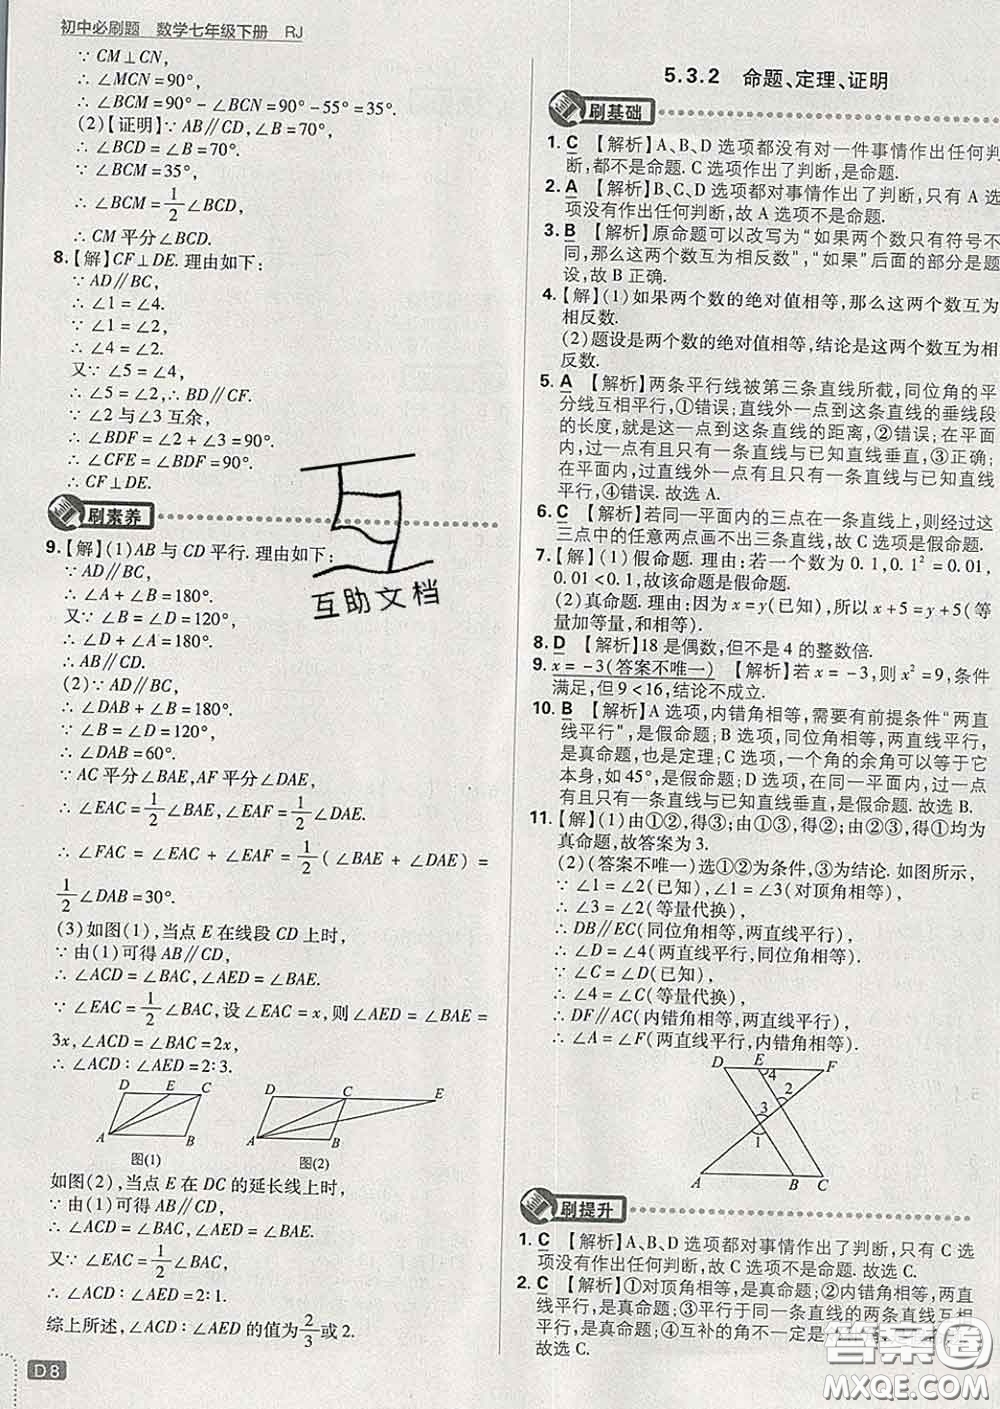 初中必刷题 数学七年级下册 RJ
∵ CM⊥CN,
∴ ∠MCN=90°,
∴ ∠BCM=90°-∠BCN=90°-55°=35°.
(2)【证明】∵ AB∥CD,∠B=70°,
∴ ∠BCD=∠B=70°.
∵ ∠BCM=35°,
∴ ∠BCM=1/2∠BCD,
∴ CM平分∠BCD.
8.【解】CF⊥DE. 理由如下:
∵ AD∥BC,
∴ ∠1=∠4.
∵ ∠1=∠2,
∴ ∠4=∠2.
又∵ ∠5=∠4,
∴ ∠5=∠2,∴ BD∥CF.
∵ ∠2与∠3互余,
∴ ∠BDF=∠2+∠3=90°.
∴ ∠CFE=∠BDF=90°.
∴ CF⊥DE.
刷素养
9.【解】(1)AB与CD平行. 理由如下:
∵ AD∥BC,
∴ ∠A+∠B=180°.
又∵ ∠B=∠D=120°,
∴ ∠D+∠A=180°.
∴ AB∥CD.
(2)∵ AD∥BC,
∴ ∠DAB+∠B=180°.
∵ ∠B=∠D=120°,
∴ ∠DAB=60°.
∵ AC平分∠BAE,AF平分∠DAE,
∴ ∠EAC=1/2∠BAE,∠EAF=1/2∠DAE.
∴ ∠FAC=∠EAC+∠EAF=1/2(∠BAE+∠DAE)=
1/2∠DAB=30°.
(3)如图(1),当点E在线段CD上时,
∵ 由(1)可得AB∥CD,
∴ ∠ACD=∠BAC,∠AED=∠BAE.
∵ ∠EAC=1/2∠BAC,设∠EAC=x,则∠AED=∠BAE=
3x,∠ACD=∠BAC=2x,
∴ ∠ACD∶∠AED=2∶3.
D E C
A B
图(1)
D C E
A B
图(2)
如图(2),当点E在DC的延长线上时,
∵ 由(1)可得AB∥CD,
∴ ∠ACD=∠BAC,∠AED=∠BAE.
又∵ ∠EAC=1/2∠BAC,
∴ ∠ACD∶∠AED=2∶1.
综上所述,∠ACD∶∠AED的值为2/3或2.
D8
5.3.2 命题、定理、证明
刷基础
1. C 【解析】A、B、D选项都没有对一件事情作出任何判
断,都不是命题. C选项作出了判断,是命题.
2. A 【解析】B、C、D选项都对事情作出了判断,只有A选
项没有作出任何判断,故A选项不是命题.
3. B 【解析】原命题可以改写为“如果两个数只有符号不
同,那么这两个数互为相反数”,“如果”后面的部分是题
设,故B正确.
4.【解】(1)如果两个数的绝对值相等,那么这两个数互为
相反数.
(2)题设是两个数的绝对值相等,结论是这两个数互为相
反数.
5. A 【解析】两条平行线被第三条直线所截,同位角的平
分线互相平行,①错误;直线外一点到这条直线的垂线段
的长度,就是这一点到这条直线的距离,②错误;在平面
内,过一点有且只有一条直线与已知直线垂直,③正确;
在平面内,过直线外一点有且只有一条直线与已知直线
平行,④错误. 故选A.
6. C 【解析】若同一平面内的三点在一条直线上,则经过
三点中的任意两点画不出三条直线,故C选项是假命题.
7.【解】(1)假命题. 理由:若一个数为0.1,0.1²=0.01,
0.01<0.1,故该命题是假命题.
(2)真命题. 理由:因为x=y(已知),所以x+5=y+5(等
量加等量,和相等).
8. D 【解析】18是偶数,但不是4的整数倍.
9. x=-3(答案不唯一) 【解析】若x=-3,则x²=9,条件
满足,但9<16,结论不成立.
10. B 【解析】A选项,内错角相等,需要有前提条件“两直
线平行”,是假命题;B选项,同位角相等,两直线平行,
是真命题,也是定理;C选项,一个角的余角可以等于它
本身,如45°,是假命题;D选项,在同一平面内,过一点
有且只有一条直线与已知直线垂直,是假命题. 故选B.
11.【解】(1)由①②,得③;由①③,得②;由②③,得①均为
真命题,故答案为3.
(2)(答案不唯一)选①②为条件,③为结论. 如图所示,
∵ ∠1=∠2(已知),∠1=∠3(对顶角相等),
∴ ∠3=∠2(等量代换),
∴ DB∥EC(同位角相等,两直线平行),
∴ ∠D=∠4(两直线平行,同位角相等).
∵ ∠C=∠D(已知),
∴ ∠4=∠C(等量代换),
∴ DF∥AC(内错角相等,两直线平行),
∴ ∠A=∠F(两直线平行,内错角相等).
D E F
4
2
3
1
A B C
刷提升
1. C 【解析】A、B、D选项都对事情作出了判断,只有C选
项没有作出任何判断,故C选项不是命题. 故选C.
2. C 【解析】①对顶角相等,是真命题;②内错角相等,两
直线平行,是真命题;③平行于同一条直线的两条直线互相
平行,是真命题;④互补的角不一定是
故选C.
互助文档
答案圈
MXQE.COM